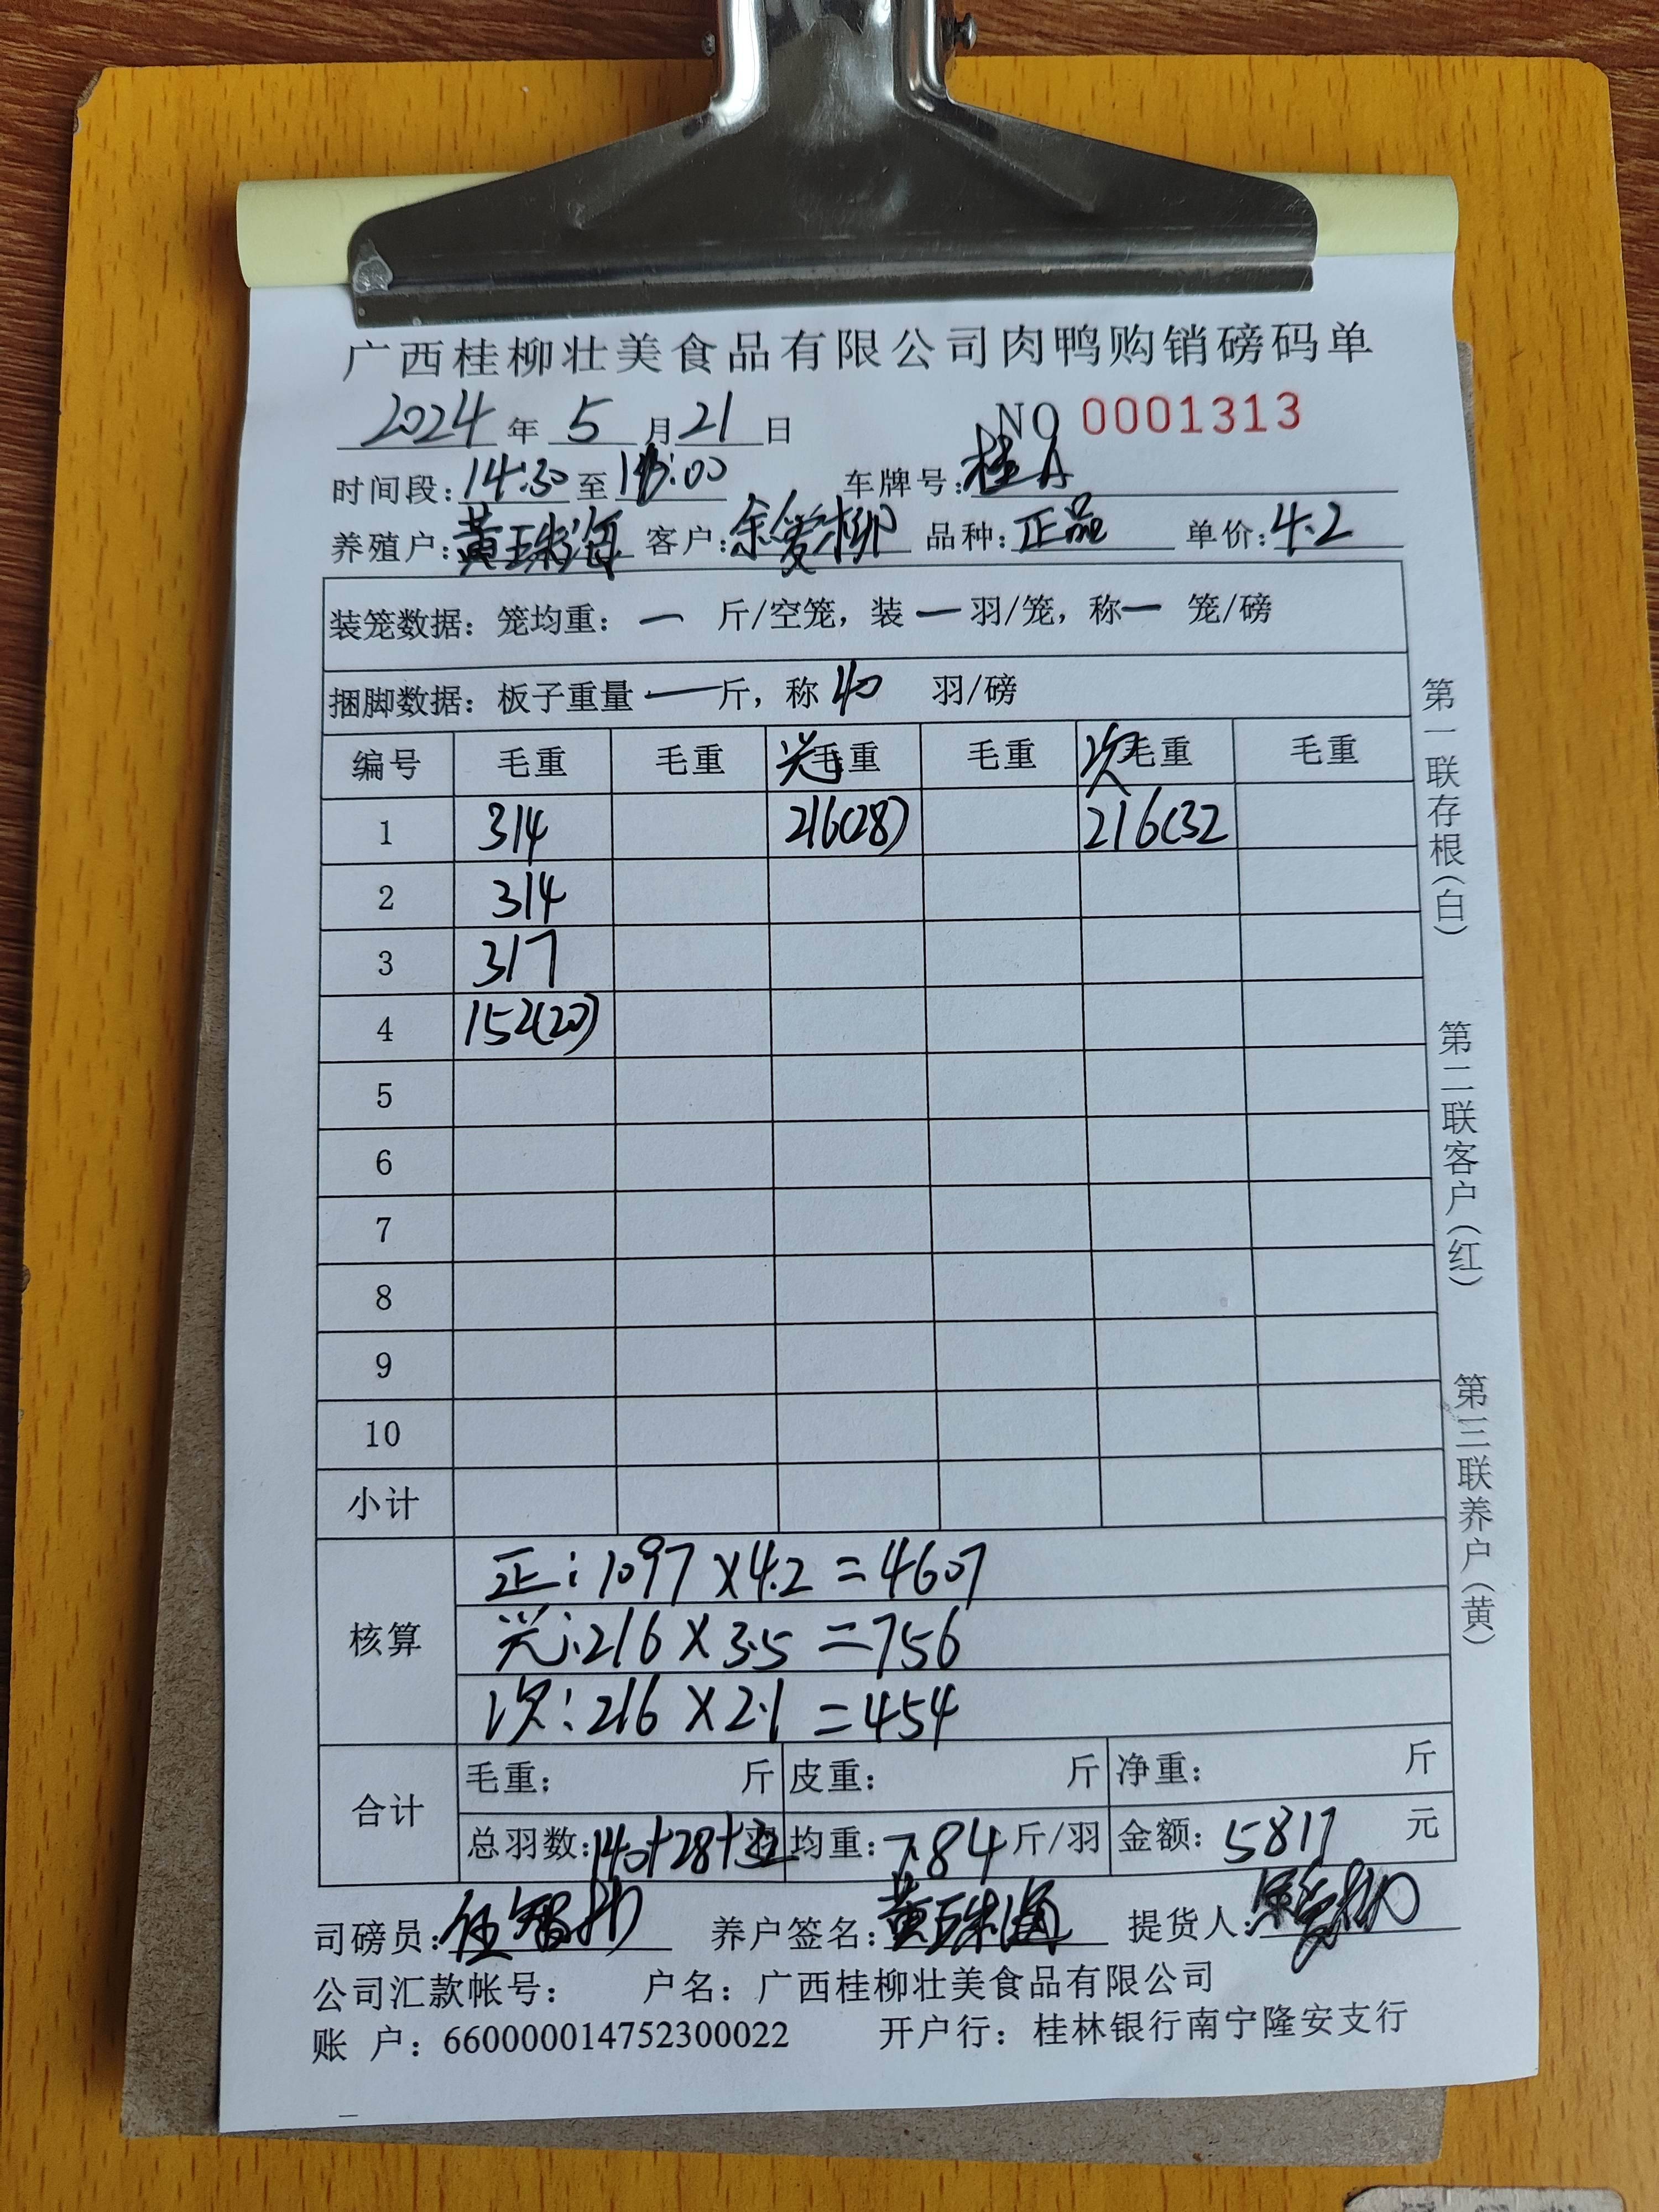 广西桂柳壮美食品有限公司肉鸭购销磅码单
2024 年 5 月 21 日 NO 0001313
时间段: 14:30 至 :00 车牌号: 桂A
养殖户: 黄珠海 客户: 余爱柳 品种: 正品 单价: 4.2
装笼数据: 笼均重: 一 斤/空笼, 装 一 羽/笼, 称 一 笼/磅
捆脚数据: 板子重量 一 斤, 称 40 羽/磅
编号 毛重 毛重 毛重 毛重 次毛重 毛重
1 314 216(28) 216(32
2 314
3 317
4 152(20)
5
6
7
8
9
10
小计
核算
正: 1097 X 4.2 = 4607
: 216 X 3.5 = 756
次: 216 X 2.1 = 454
合计
毛重: 斤 皮重: 斤 净重: 斤
总羽数: 140+28+32 羽 均重: 7.84 斤/羽 金额: 5817 元
司磅员: 养户签名: 黄珠海 提货人: 余爱柳
公司汇款帐号: 户名: 广西桂柳壮美食品有限公司
账 户: 660000014752300022 开户行: 桂林银行南宁隆安支行
第一联存根(白)
第二联客户(红)
第三联养户(黄)